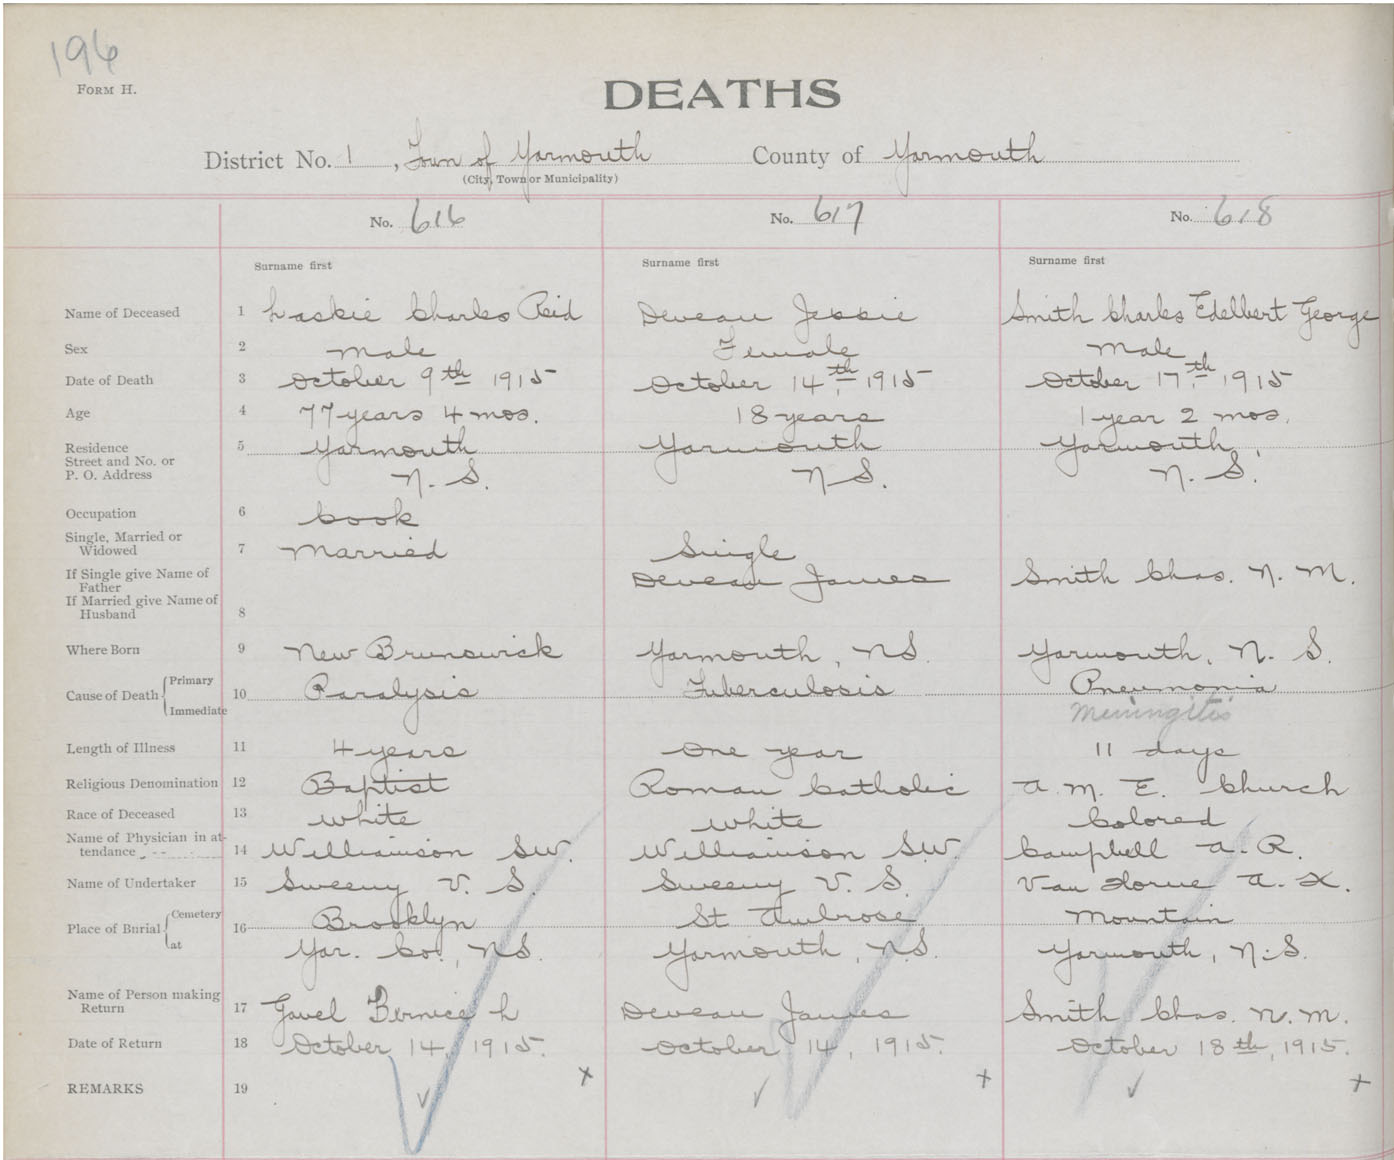 196
FORM H.
DEATHS
District No. 1, Town of Yarmouth County of Yarmouth
(City, Town or Municipality)
No. 616 No. 617 No. 618
Surname first Surname first Surname first
Name of Deceased 1 Laskie Charles Reid Deveau Jessie Smith Charles Edelbert George
Sex 2 Male Female Male
Date of Death 3 October 9th 1915 October 14th, 1915 October 17th, 1915
Age 4 77 years 4 mos. 18 years 1 year 2 mos.
Residence 5 Yarmouth Yarmouth Yarmouth,
Street and No. or
P. O. Address N. S. N S. N. S.
Occupation 6 Cook
Single, Married or
Widowed 7 Married Single
If Single give Name of
Father Deveau James Smith Chas. N. M.
If Married give Name of
Husband 8
Where Born 9 New Brunswick Yarmouth, NS. Yarmouth, N. S.
Cause of Death { Primary 10 Paralysis Tuberculosis Pneumonia
Immediate Meningitis
Length of Illness 11 4 years One year 11 days
Religious Denomination 12 Baptist Roman Catholic A. M. E. Church
Race of Deceased 13 White White Colored
Name of Physician in at-
tendance 14 Williamson S.W. Williamson S.W. Campbell A. R.
Name of Undertaker 15 Sweeny V. S. Sweeny V. S. Van Horne A. X.
Place of Burial { Cemetery 16 Brooklyn St Ambrose Mountain
at Yar. Co., NS. Yarmouth, N.S. Yarmouth, N.S.
Name of Person making
Return 17 Gavel Bernice L Deveau James Smith Chas. N. M.
Date of Return 18 October 14, 1915. October 14, 1915. October 18th, 1915.
REMARKS 19 ✓ x ✓ x ✓ x